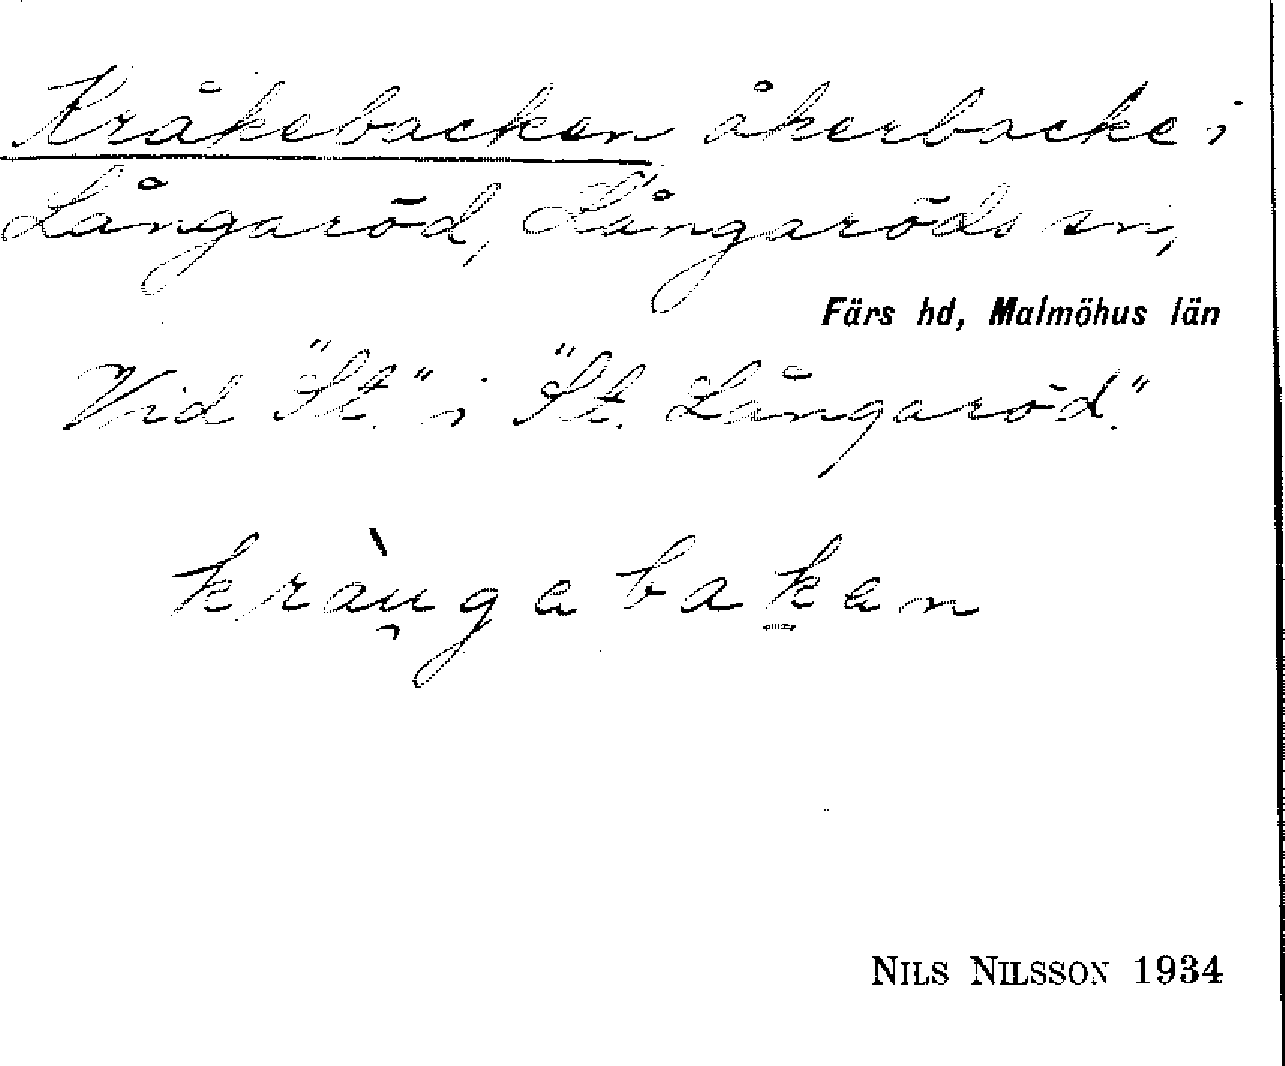 Kråkebacken åkerbacke i
Långaröd, Långaröds sn,
Färs hd, Malmöhus län
Vid "St." i "St. Långaröd."
kràu̯gabak̲an
NILS NILSSON 1934